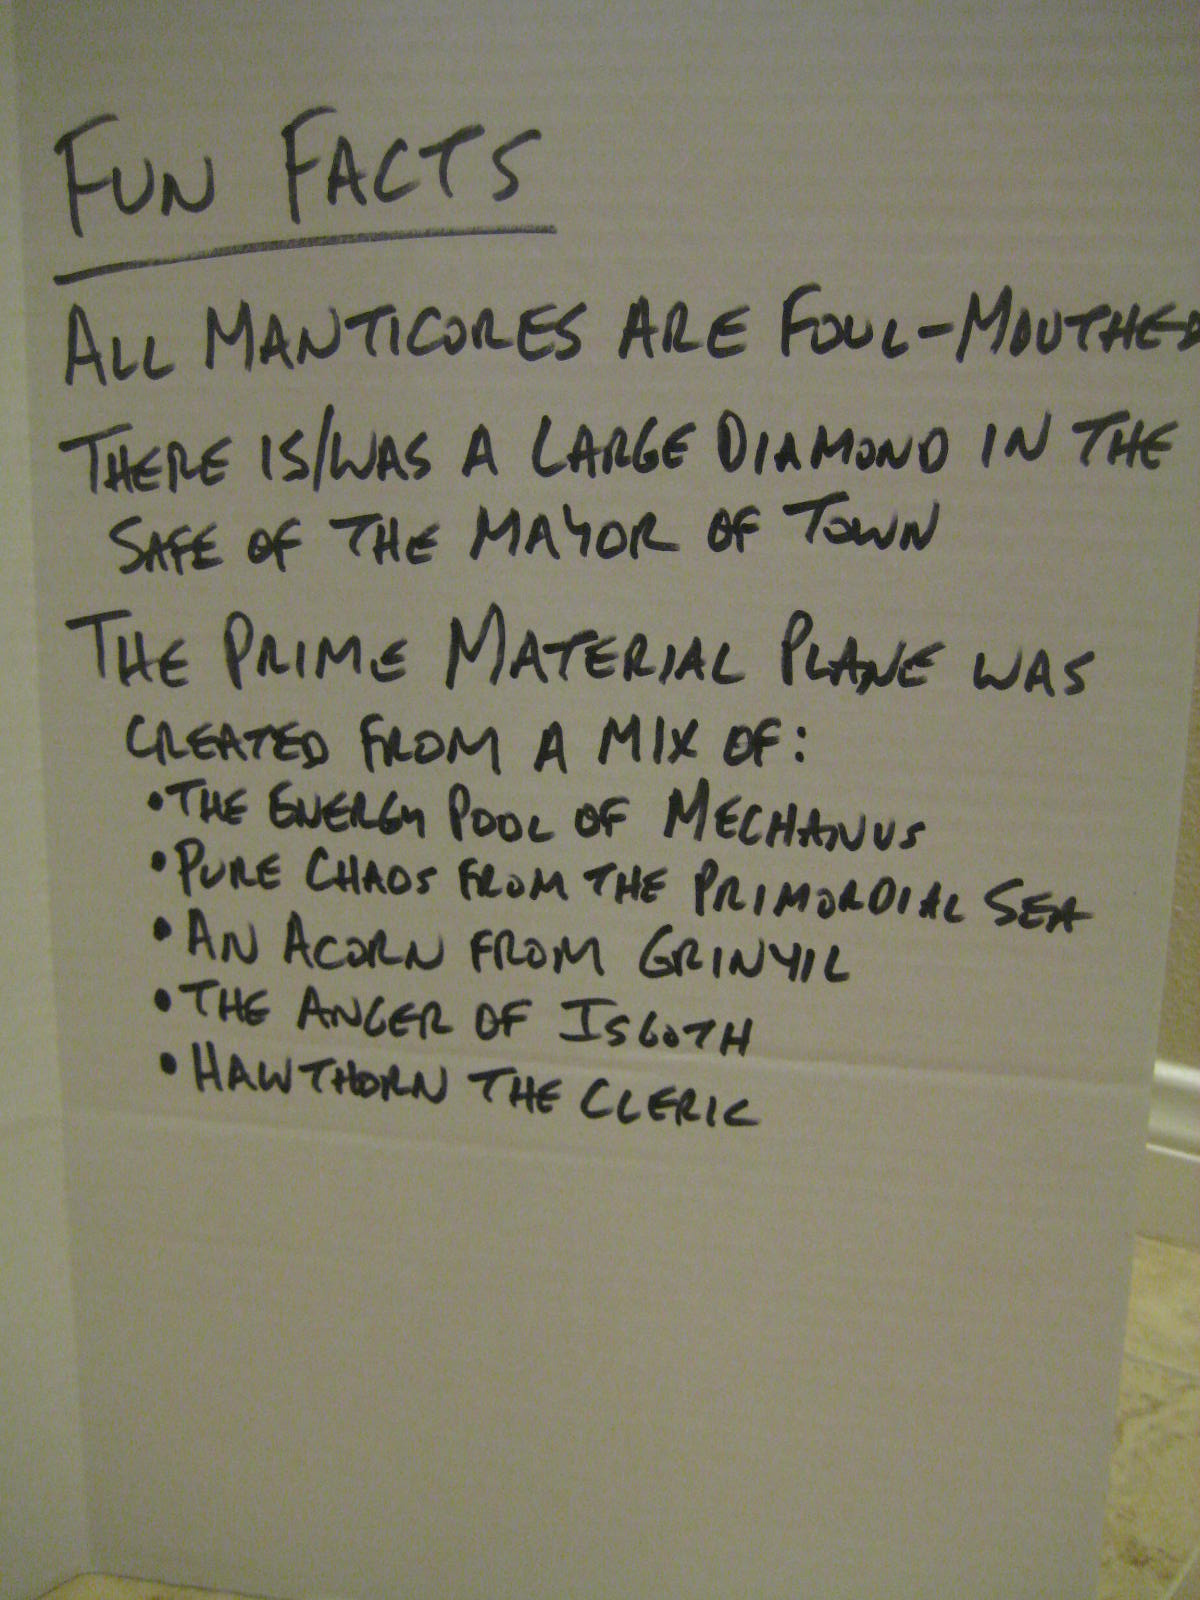 FUN FACTS
ALL MANTICORES ARE FOUL-MOUTHED
THERE IS/WAS A LARGE DIAMOND IN THE
SAFE OF THE MAYOR OF TOWN
THE PRIME MATERIAL PLANE WAS
CREATED FROM A MIX OF:
• THE ENERGY POOL OF MECHANUS
• PURE CHAOS FROM THE PRIMORDIAL SEA
• AN ACORN FROM GRINYIL
• THE ANGER OF ISGOTH
• HAWTHORN THE CLERIC